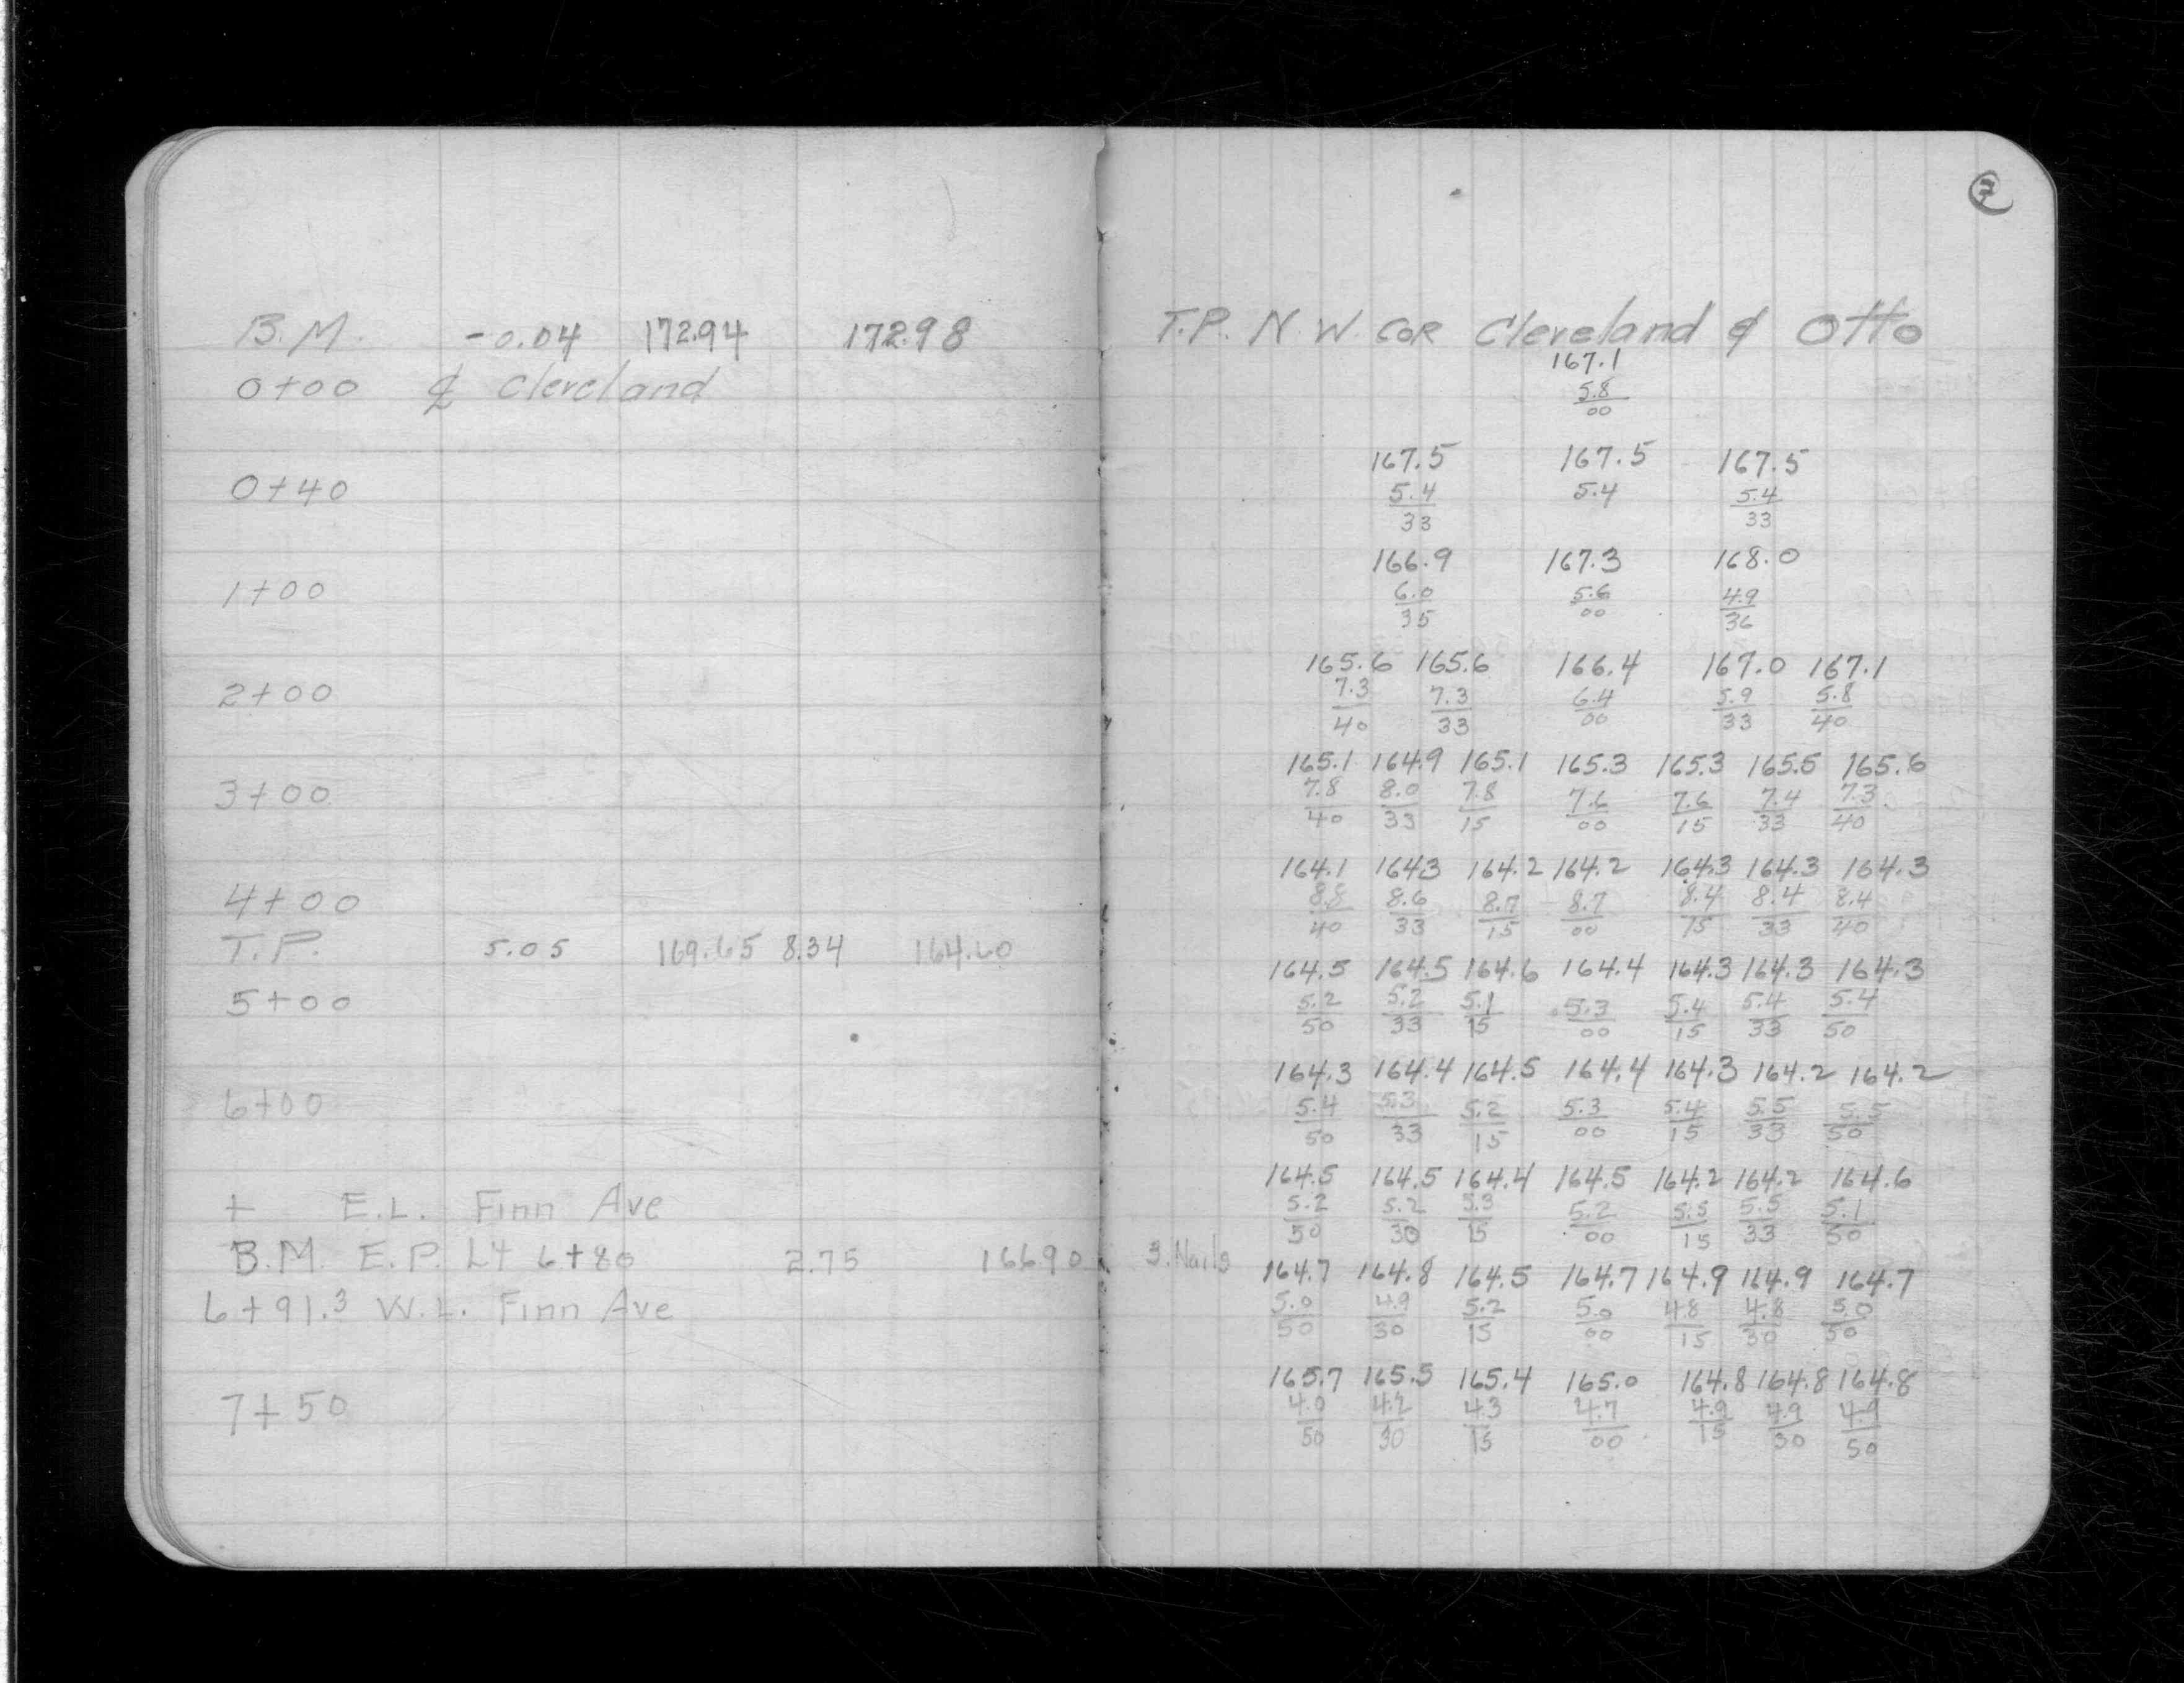 7
B.M. -0.04 172.94 172.98 T.P. N.W. COR Cleveland & Otto
167.1
0+00 ℄ Cleveland 5.8
00
167.5 167.5 167.5
0+40 5.4 5.4 5.4
33 33
166.9 167.3 168.0
1+00 6.0 5.6 4.9
35 00 36
165.6 165.6 166.4 167.0 167.1
2+00 7.3 7.3 6.4 5.9 5.8
40 33 00 33 40
165.1 164.9 165.1 165.3 165.3 165.5 165.6
3+00 7.8 8.0 7.8 7.6 7.6 7.4 7.3
40 33 15 00 15 33 40
164.1 164.3 164.2 164.2 164.3 164.3 164.3
4+00 8.8 8.6 8.7 8.7 8.4 8.4 8.4
40 33 15 00 15 33 40
T.P. 5.05 169.65 8.34 164.60
164.5 164.5 164.6 164.4 164.3 164.3 164.3
5+00 5.2 5.2 5.1 5.3 5.4 5.4 5.4
50 33 15 00 15 33 50
164.3 164.4 164.5 164.4 164.3 164.2 164.2
6+00 5.4 5.3 5.2 5.3 5.4 5.5 5.5
50 33 15 00 15 33 50
164.5 164.5 164.4 164.5 164.2 164.2 164.6
+ E.L. Finn Ave 5.2 5.2 5.3 5.2 5.5 5.5 5.1
50 30 15 00 15 33 50
B.M. E.P. Lt 6+80 2.75 166.90 3.Nails
164.7 164.8 164.5 164.7 164.9 164.9 164.7
6+91.3 W.L. Finn Ave 5.0 4.9 5.2 5.0 4.8 4.8 5.0
50 30 15 00 15 30 50
165.7 165.5 165.4 165.0 164.8 164.8 164.8
7+50 4.0 4.2 4.3 4.7 4.9 4.9 4.9
50 30 15 00 15 30 50